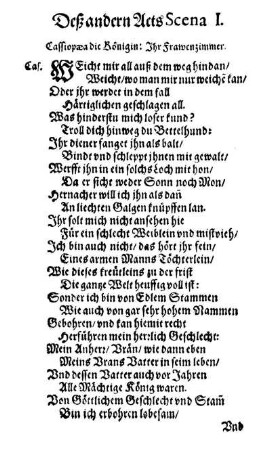 Deß andern Acts Scena I.
Cassiopæa die Königin: Ihr Frawenzimmer.
Cas. WEicht mir all auß dem weg hindan/
Weicht/ wo man mir nur weichē kan/
Oder ihr werdet in dem fall
Härtiglichen geschlagen all.
Was hinderstu mich loser kund?
Troll dich hinweg du Bettelhund:
Ihr diener fanget jhn als balt/
Bindt vnd schleppt jhnen mit gewalt/
Werfft jhn in ein solchs Loch mit hon/
Da er sicht weder Sonn noch Mon/
Hernacher will ich jhn als dañ
An liechten Galgen knüpffen lan.
Ihr solt mich nicht ansehen hie
Für ein schlecht Weiblein vnd mistvieh/
Ich bin auch nicht/ das hört jhr fein/
Eines armen Manns Töchterlein/
Wie dieses kreütleins zu der frist
Die gantze Welt heuffig voll ist:
Sonder ich bin von Edlem Stammen
Wie auch von gar sehr hohem Nammen
Gebohren/ vnd kan hiemit recht
Herführen mein herrlich Geschlecht:
Mein Anherr/ Vrän/ wie dann eben
Meins Vrans Vatter in seim leben/
Vnd dessen Vatter auch vor Jahren
Alle Mächtige König waren.
Von Göttlichem Geschlecht vnd Stam̃
Bin ich erbohren lobesam/
Vnd